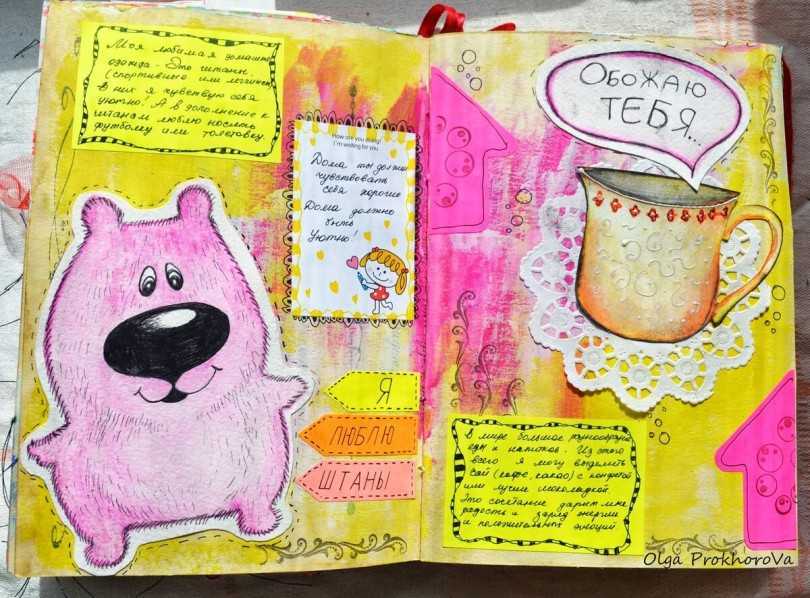 Моя любимая домашняя
одежда - Это штаны
(спортивного или леггинсы)
В них я чувствую себя
уютно! А в дополнение к
штанам люблю носить
футболку или толстовку
How are you doing?
I'm waiting for you
Дома ты должна
чувствовать
себя хорошо
Дома должно
быть
Уютно!
Я
ЛЮБЛЮ
ШТАНЫ
ОБОЖАЮ
ТЕБЯ...
В мире большое разнообразие
еды и напитков. Из этого
всего я могу выделить
Чай (кофе, какао) с конфетой
или лучше шоколадкой.
Это сочетание дарит мне
радость и заряд энергии
и положительных эмоций
Olga ProkhoroVa